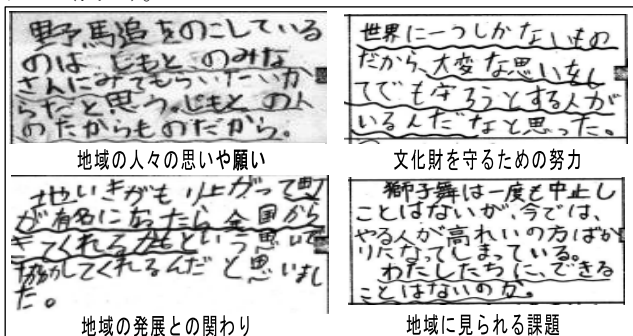 野馬追をのこしている
のは じもと のみな
さんにみてもらいたいか
らだと思う。じもと の人
のたからものだから。
地域の人々の思いや願い
世界に一つしかないもの
だから、大変な思いをし
てでも守ろうとする人が
いるんだなと思った。
文化財を守るための努力
地いきがもり上がって町
が有名になったら全国から
きてくれるかもという思いで
協力してくれるんだ と思いまし
た。
地域の発展との関わり
獅子舞は一度も中止し
ことはないが、今では、
やる人が高れいの方ばか
りになってしまっている。
わたしたちに、できる
ことはないのか。
地域に見られる課題